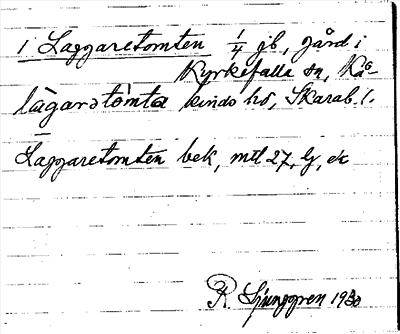 i Laggaretomten 1/4 jb, gård i
Kyrkefalla sn, Kå-
làgarətòmta kinds hd, Skarab. l.
Laggaretomten bek, mtl 27,
R. Ljunggren 1930